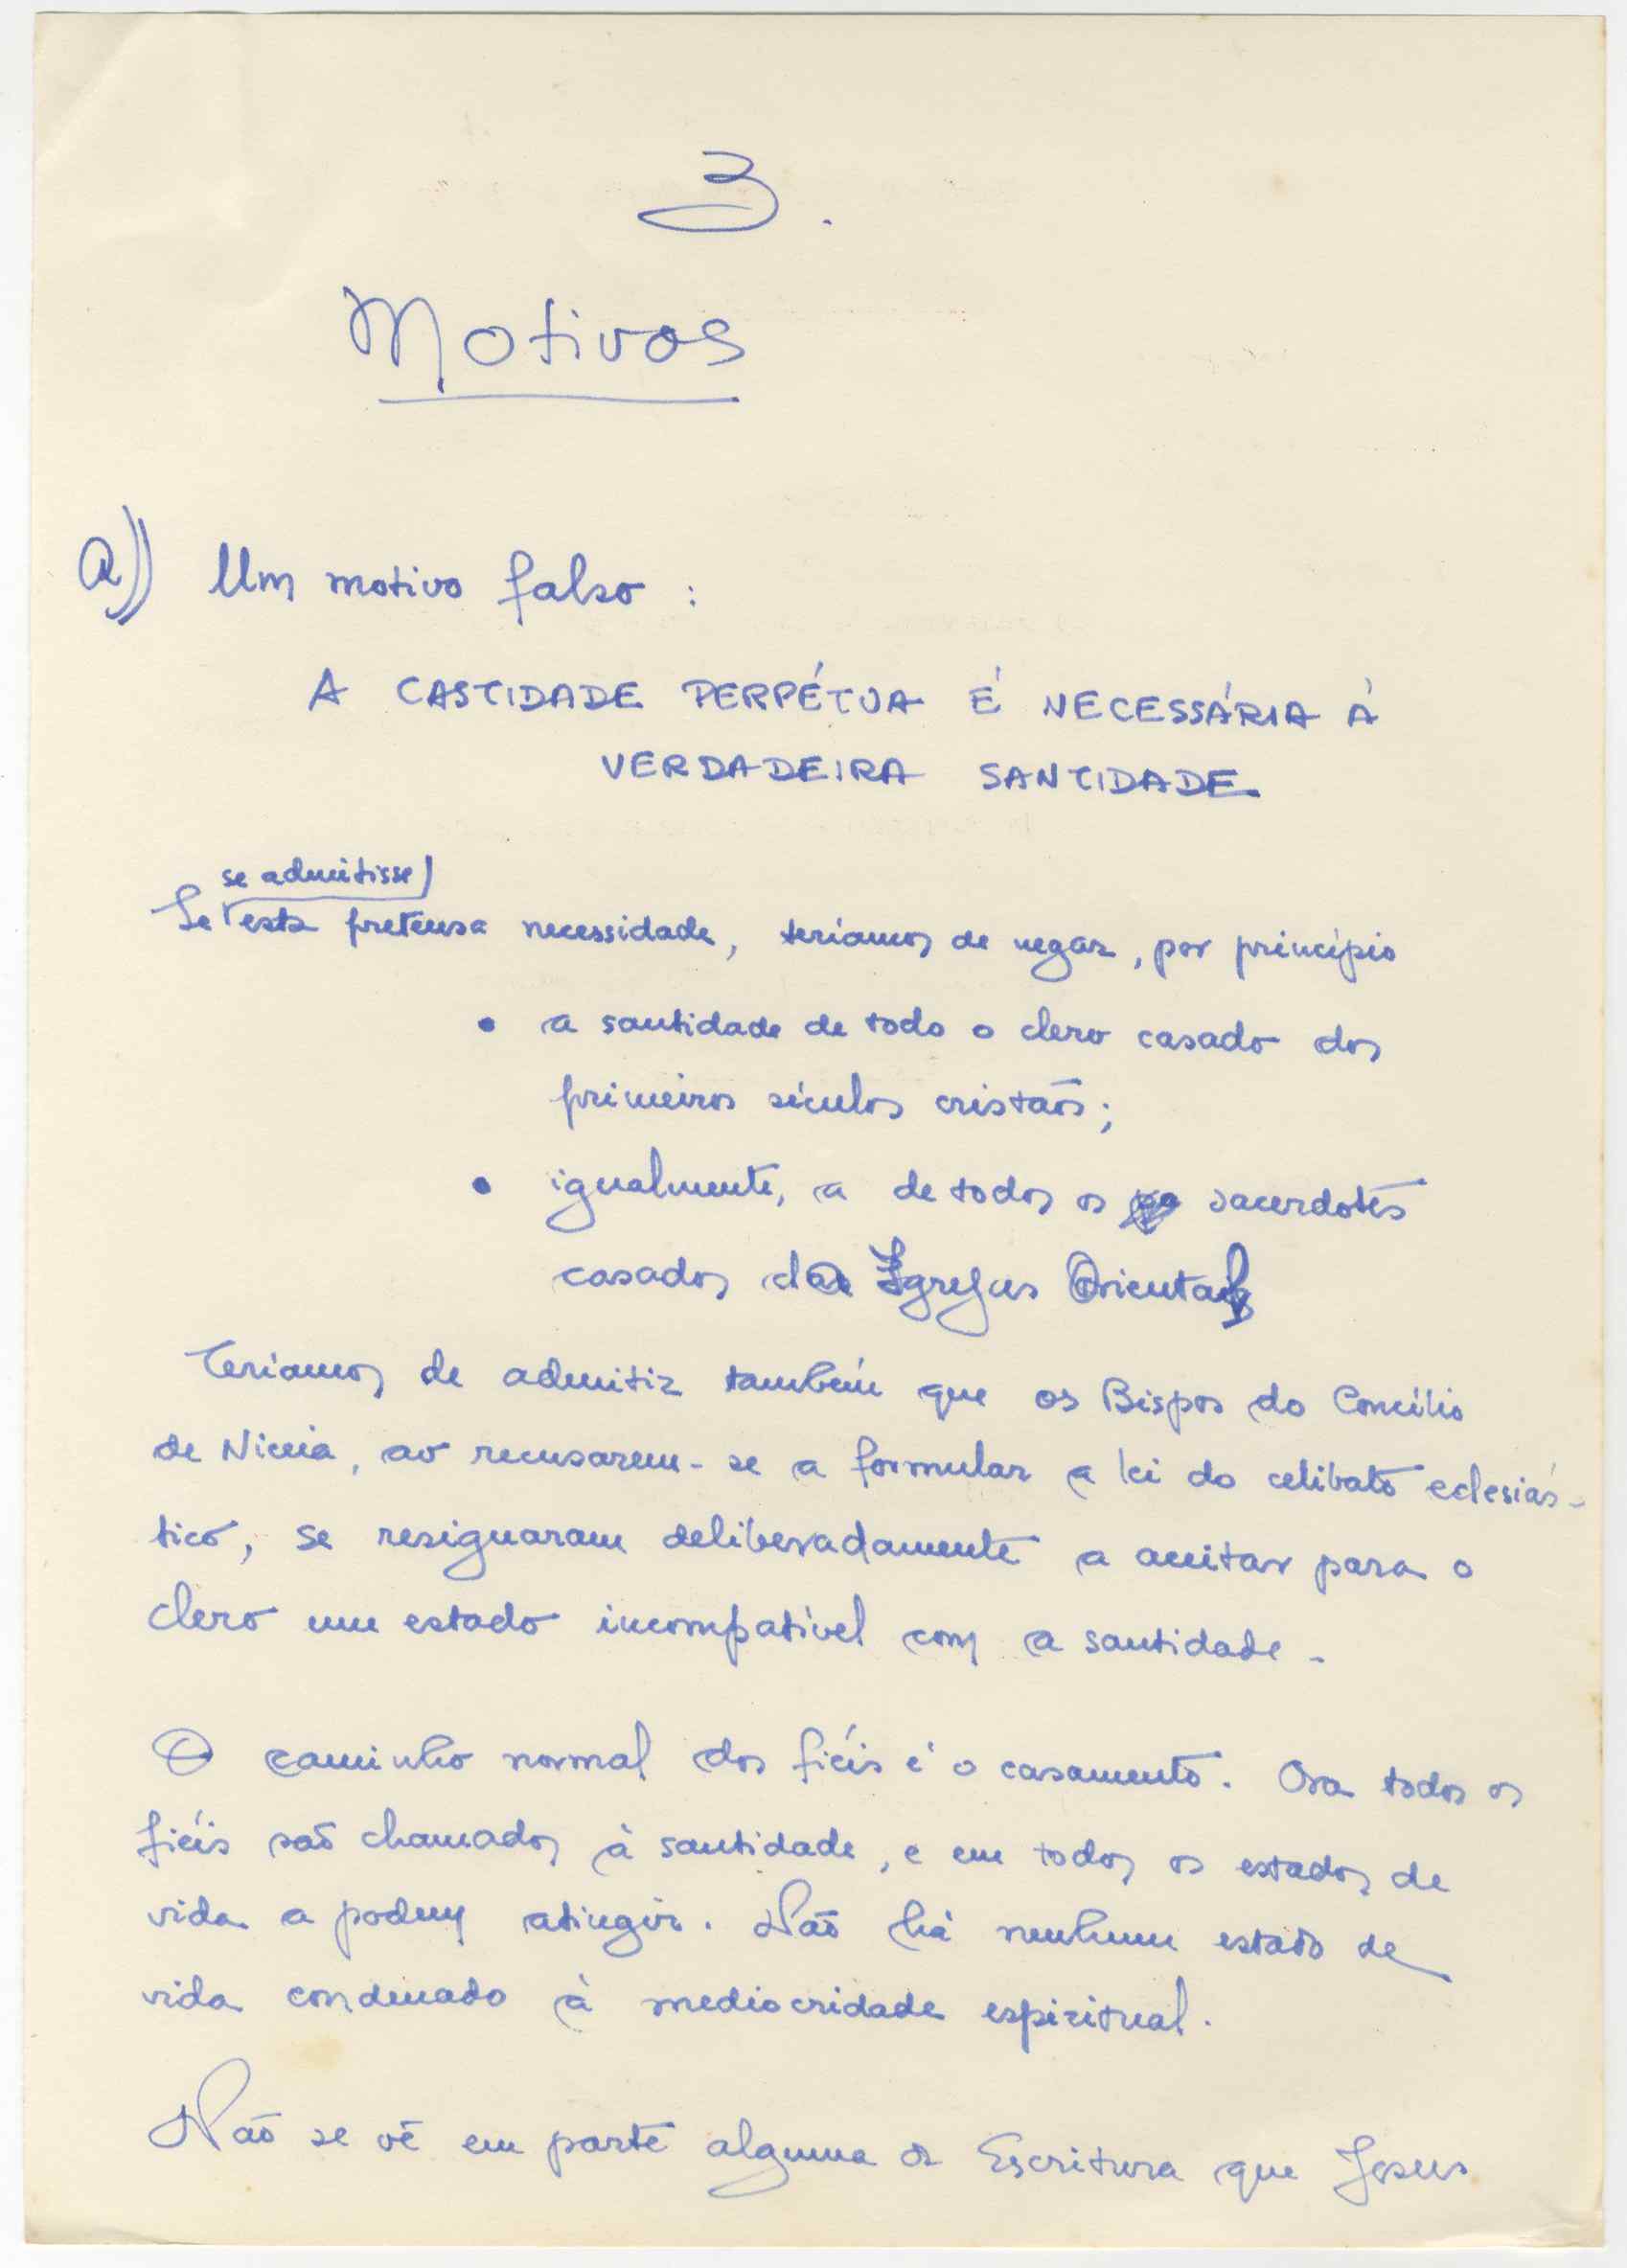 3.
Motivos
a)) Um motivo falso :
A CASTIDADE PERPÉTUA É NECESSÁRIA À
VERDADEIRA SANTIDADE
se admitisse
Se esta pretensa necessidade, teríamos de negar, por princípio
• a santidade de todo o clero casado dos
primeiros séculos cristãos;
• igualmente, a de todos os sacerdotes
casados da Igrejas Orientais
Teríamos de admitir também que os Bispos do Concílio
de Niceia, ao recusarem-se a formular a lei do celibato eclesiás-
tico, se resignaram deliberadamente a aceitar para o
clero um estado incompatível com a santidade.
O caminho normal dos fiéis é o casamento. Ora todos os
fiéis são chamados à santidade, e em todos os estados de
vida a podem atingir. Não há nenhum estado de
vida condenado à mediocridade espiritual.
Não se vê em parte alguma da Escritura que Jesus